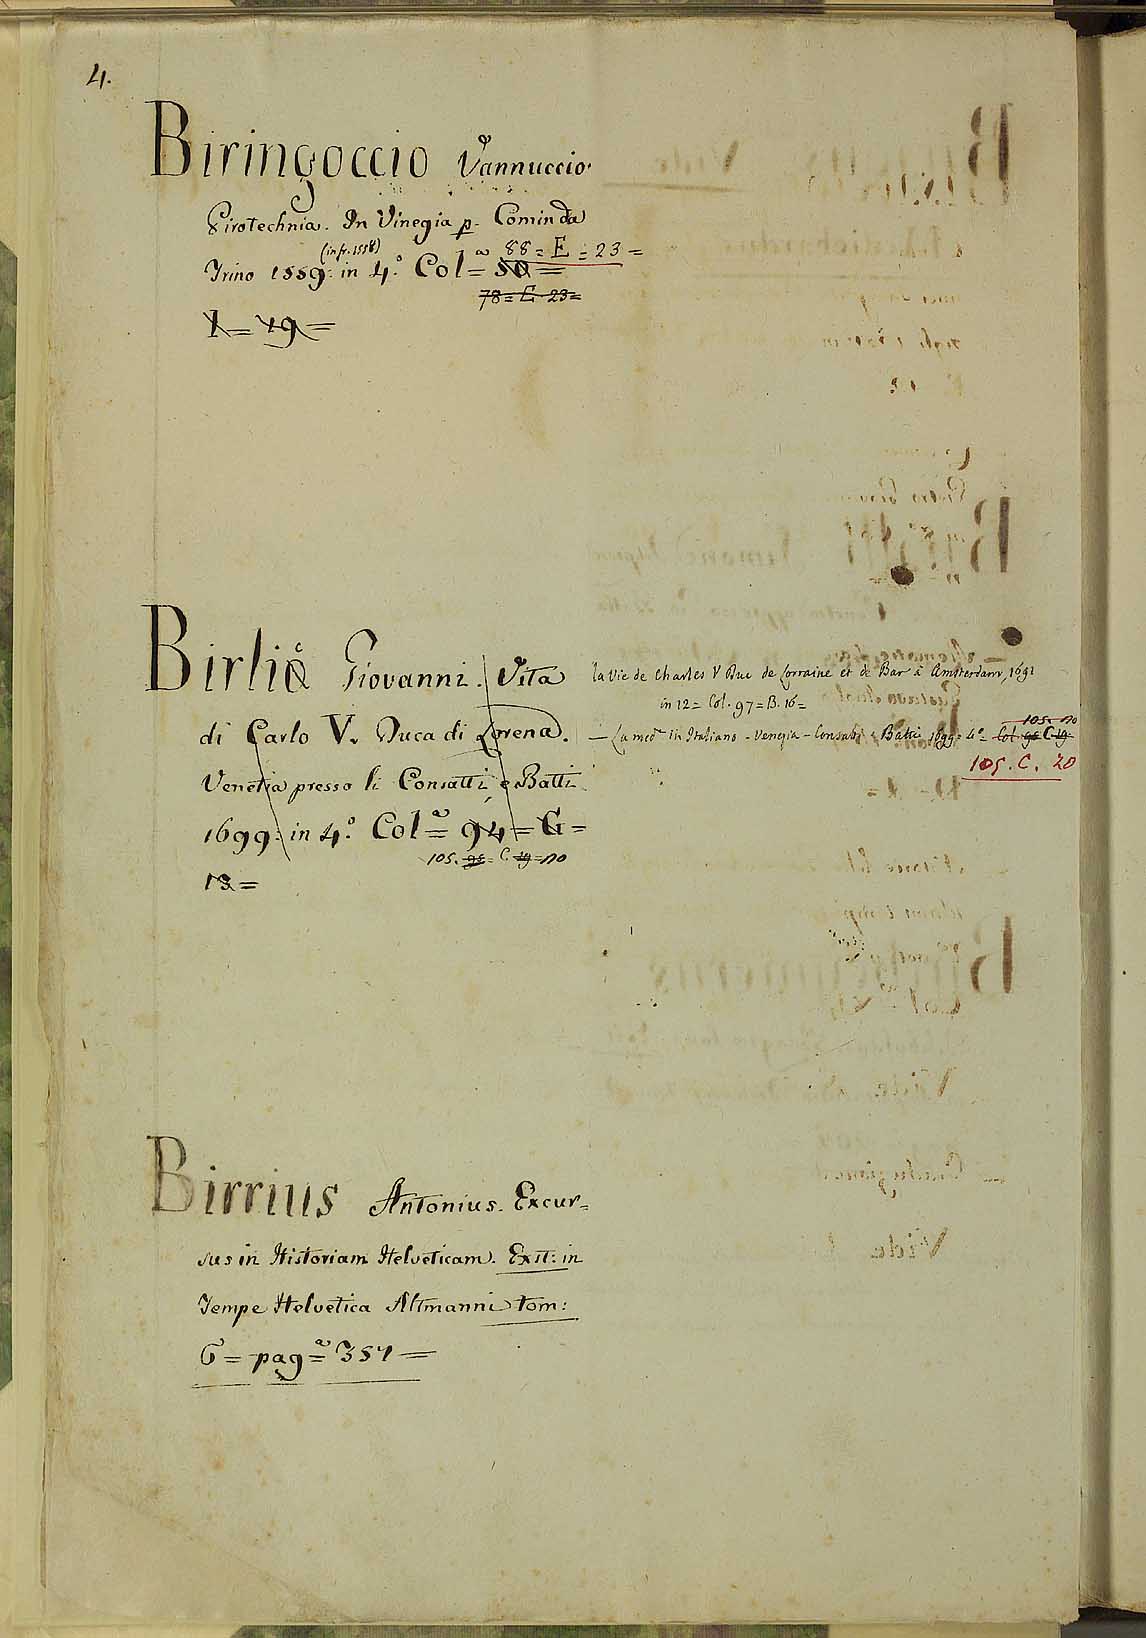 4.
Biringoccio Vannuccio.
Pirotechnia. In Vinegia p. Comin da
(in fr. 1558)
Trino 1559: in 4.° Col=ª 50 =
88 = E = 23 =
78 = E 23 =
I = 19 =
Birliè Giovanni. Vita
di Carlo V. Duca di Lorena.
Venetia presso li Consatti, e Batti
1699: in 4.° Col=ª 94 = G =
105. 98 = C. 19 = 20
13 =
la Vie de Charles V Duc de Lorraine et de Bar à Amsterdam, 1691
in 12 = Col. 97 = B. 16 =
— La med.ª in Italiano - Venezia - Consatti e Batti 1699 = 4° = Col. 98 C 19
105. 20
105. C. 20
Birrius Antonius. Excur=
sus in Historiam Helveticam. Exst: in
Tempe Helvetica Altmanni tom:
6 = pag=ª 357 =